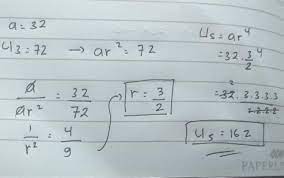 a = 32
U3 = 72 → ar² = 72
a/ar² = 32/72
1/r² = 4/9
r = 3/2
U5 = ar⁴
= 32 · 3/2⁴
= 32² · 3.3.3.3/2.2.2.2
U5 = 162
PAPERL